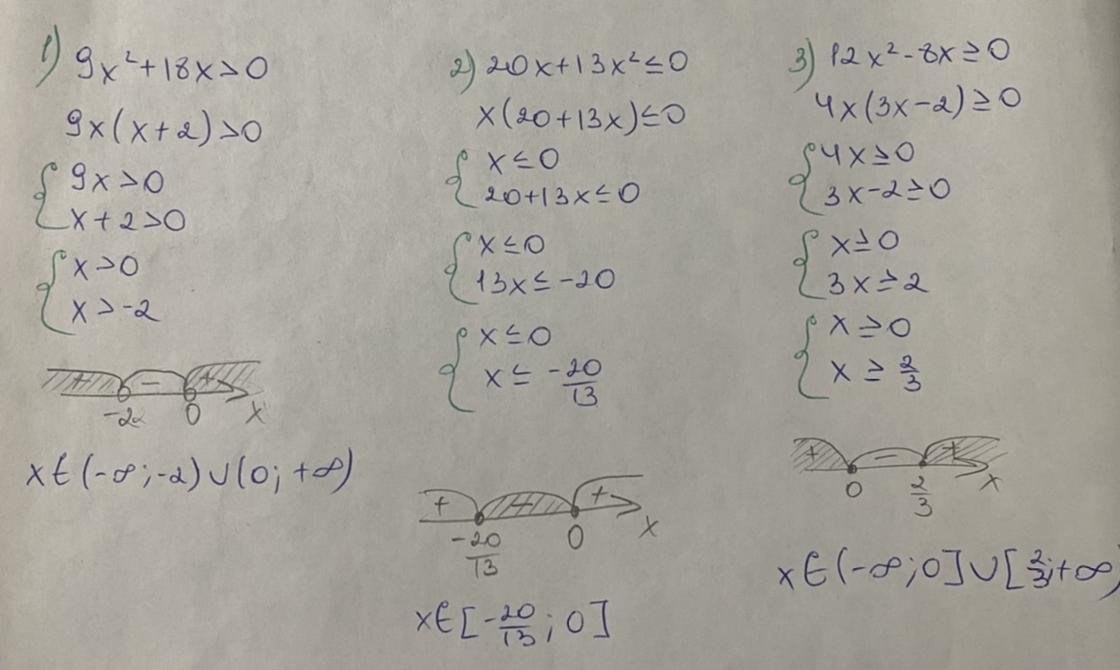 1) 9x²+18x>0
9x(x+2)>0
{ 9x>0
x+2>0
{ x>0
x>-2
+ - +
-2 0 x
x∈(-∞;-2)∪(0;+∞)
2) 20x+13x²≤0
x(20+13x)≤0
{ x≤0
20+13x≤0
{ x≤0
13x≤-20
{ x≤0
x≤-20/13
+ - +
-20/13 0 x
x∈[-20/13;0]
3) 12x²-8x≥0
4x(3x-2)≥0
{ 4x≥0
3x-2≥0
{ x≥0
3x≥2
{ x≥0
x≥2/3
+ - +
0 2/3 x
x∈(-∞;0]∪[2/3;+∞)